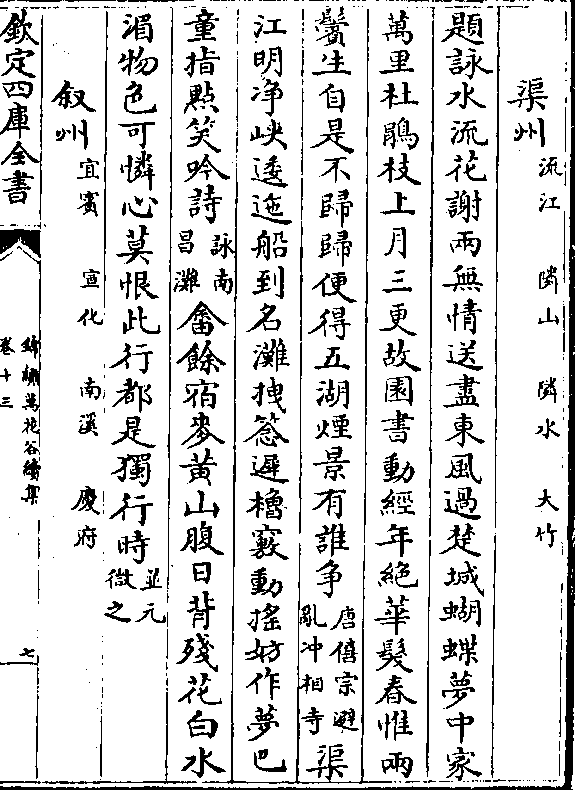 渠州 流江 隣山 隣水 大竹
題詠水流花謝兩無情送盡東風過楚城蝴蝶夢中家
萬里杜鵑枝上月三更故園書動經年絶華髮春惟兩
鬢生自是不歸歸便得五湖煙景有誰爭唐僖宗避亂冲相寺渠
江明净峽逶迤船到名灘拽遲櫓竅動搖妨作夢巴
童指㸃笑吟詩詠南昌灘畬餘宿麥黃山腹日背殘花白水
湄物色可憐心莫恨此行都是獨行時並元微之
叙州 宜賓 宣化 南溪 慶府
欽定四庫全書
錦繡萬花谷續集
卷十三
七